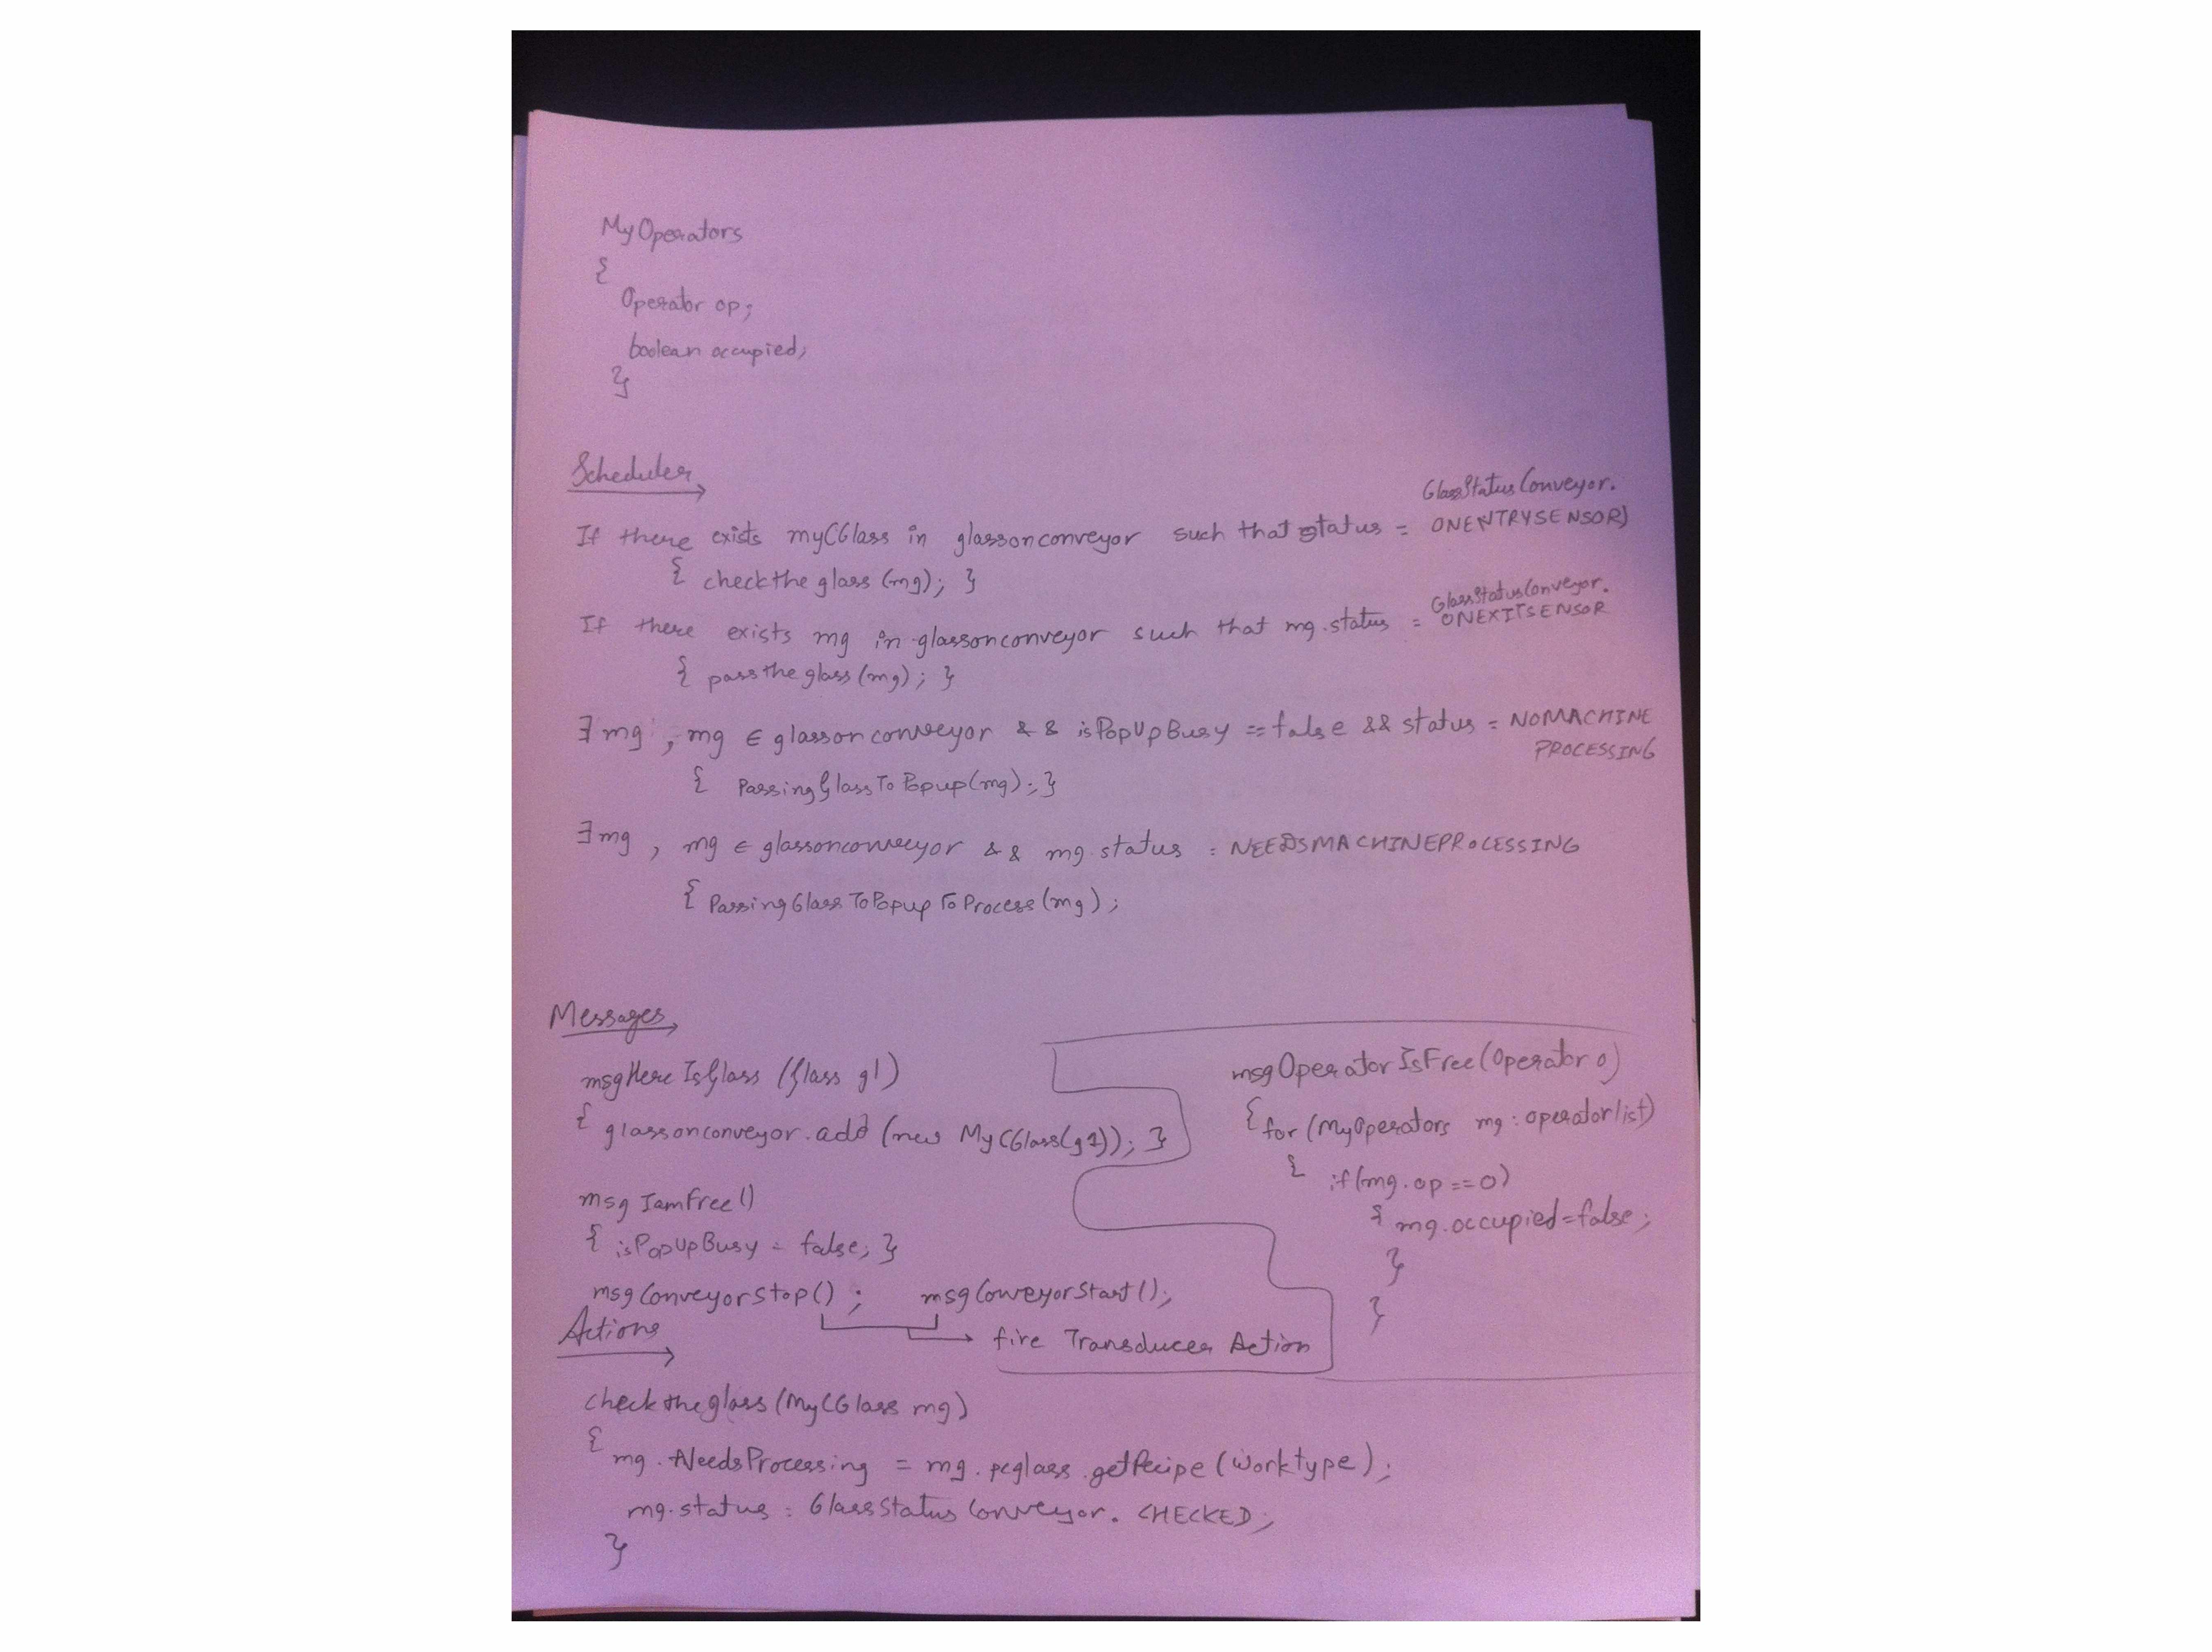 MyOperators
{
Operator op;
boolean occupied;
}
Scheduler
GlassStatusConveyor.
If there exists myCGlass in glassonconveyor such that status = ONENTRYSENSOR)
{ checktheglass (mg); }
GlassStatusConveyor.
If there exists mg in glassonconveyor such that mg.status = ONEXITSENSOR
{ passtheglass (mg); }
∃ mg , mg ∈ glassonconveyor && isPopUpBusy == false && status = NOMACHINE
PROCESSING
{ PassingGlassToPopup(mg); }
∃ mg , mg ∈ glassonconveyor && mg.status = NEEDSMACHINEPROCESSING
{ PassingGlassToPopupToProcess(mg);
Messages
msgHereIsGlass (Glass g1)
{ glassonconveyor.add (new MyCGlass(g1)); }
msgIamFree()
{ isPopUpBusy = false; }
msgConveyorStop(); msgConveyorStart();
fire Transducer Action
msgOperatorIsFree(Operator o)
{ for (MyOperators mg : operatorlist)
{ if(mg.op == o)
{ mg.occupied=false;
}
}
Actions
checktheglass (MyCGlass mg)
{
mg.NeedsProcessing = mg.pcglass.getRecipe(worktype);
mg.status = GlassStatusConveyor.CHECKED;
}